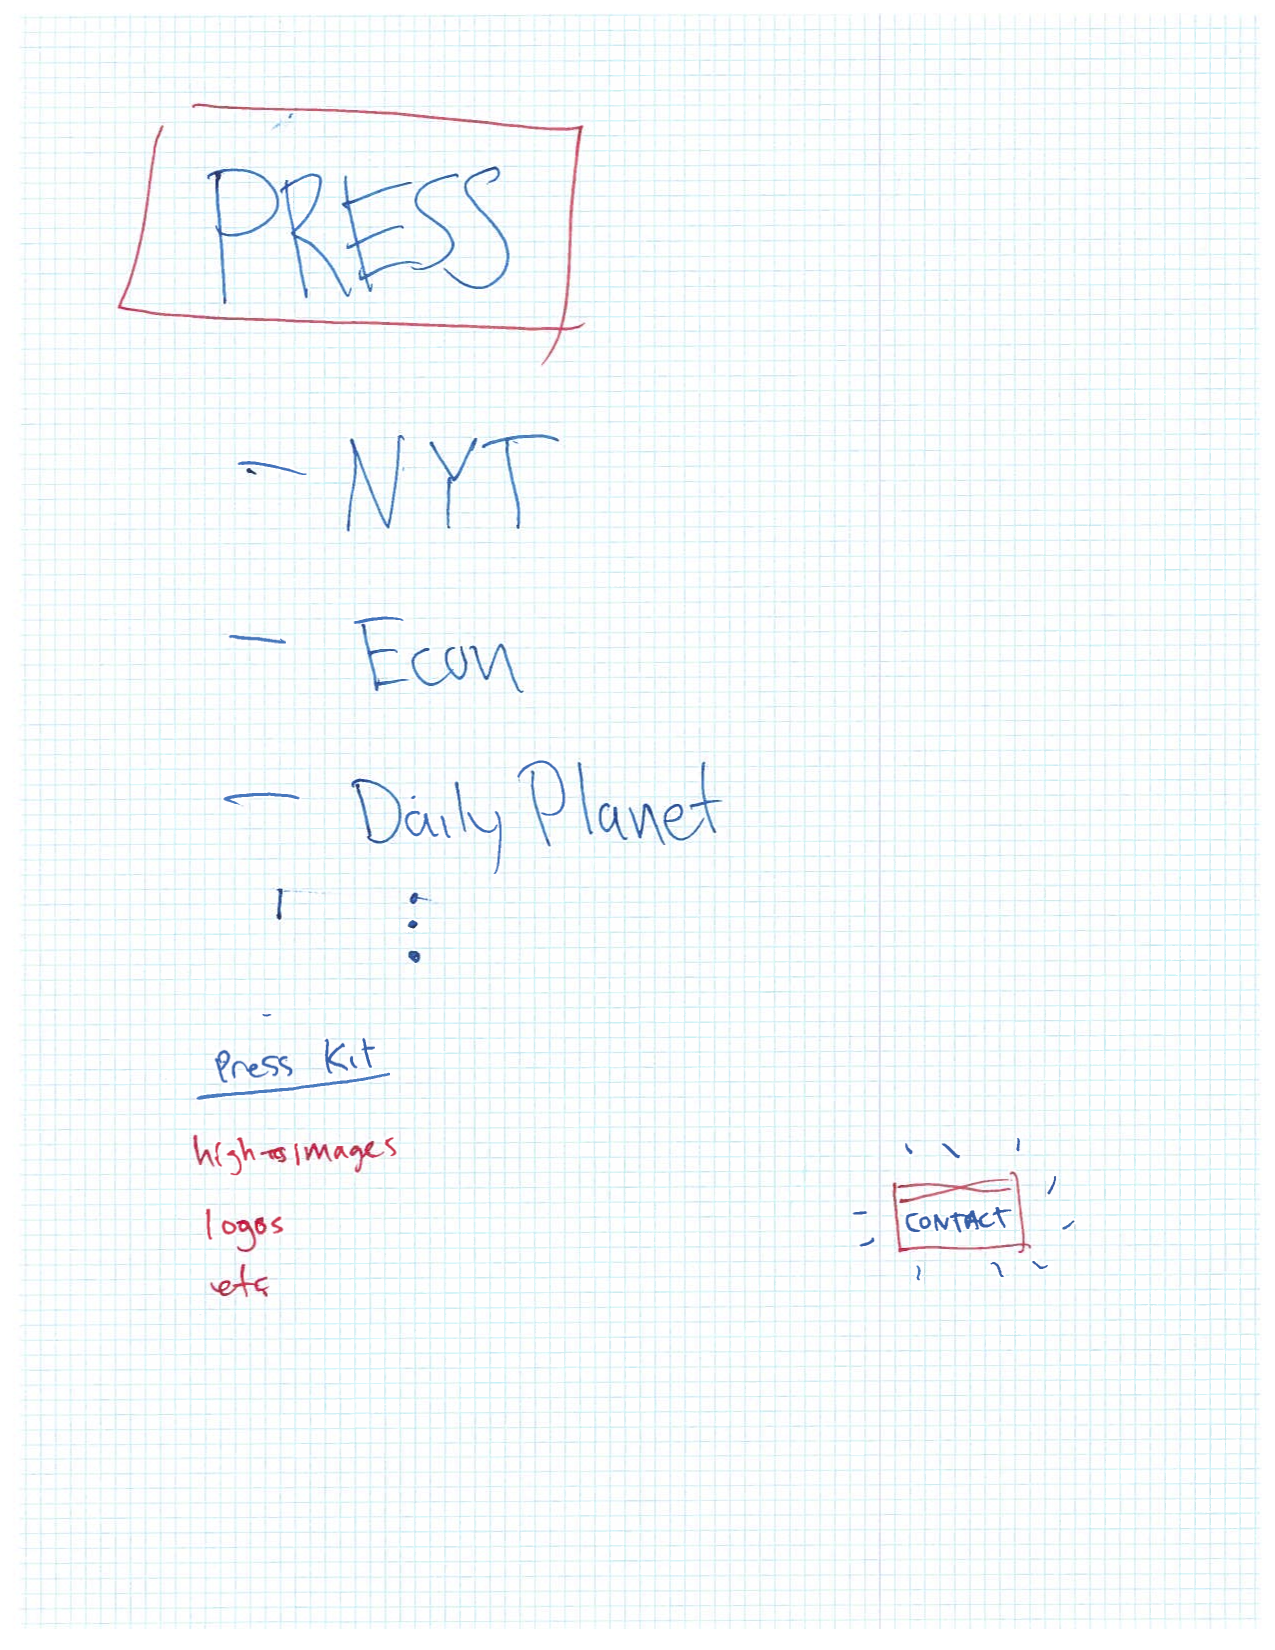 PRESS
- NYT
- Econ
- Daily Planet
⋮
Press Kit
high-images
logos
etc
CONTACT